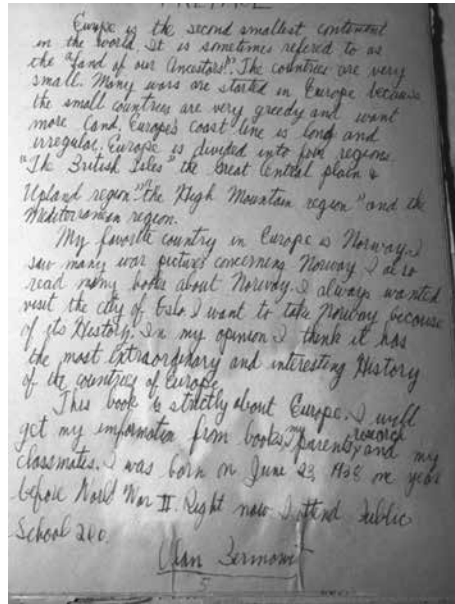 PREFACE
Europe is the second smallest continent
in the world. It is sometimes refered to as
the "land of our Ancestors". The countries are very
small. Many wars are started in Europe because
the small countries are very greedy and want
more land. Europe's coast line is long and
irregular. Europe is divided into four regions.
"The British Isles" the Great Central plain &
Upland region" "the High Mountain region" and the
Mediterranean region.
My favorite country in Europe is Norway. I
saw many war pictures concerning Norway. I also
read many books about Norway. I always wanted
visit the city of Oslo. I want to take Norway because
of its History. In my opinion I think it has
the most Extraordinary and interesting History
of the countries of Europe.
This book is strictly about Europe. I will
get my information from books, my parents, research and my
classmates. I was born on June 23, 1938 one year
before World War II. Right now I attend Public
School 200.
Alan
5